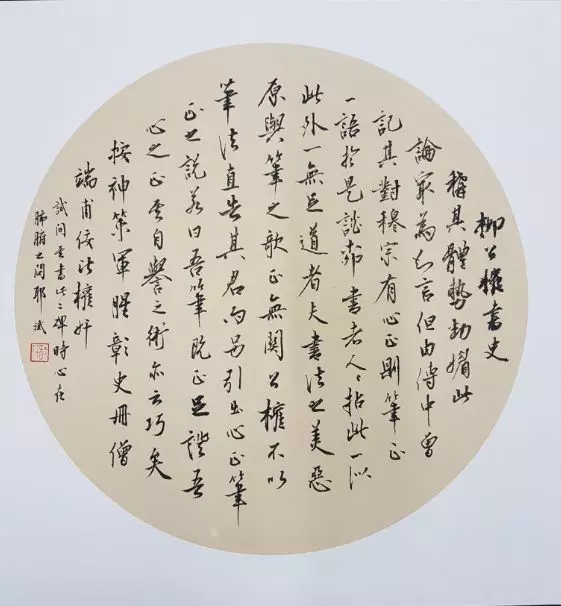 柳公權書史
稱其體勢勁媚此
論最為知言但由傳中曾
記其對穆宗有心正則筆正
一語於是談柳書者人人拈此一似
此外一無足道者夫書法之美惡
原與筆之欹正無關公權不以
筆法直告其君而另引出心正筆
正之說若曰吾筆既正足證吾
心之正其自譽之術亦云巧矣
按神策軍腥彰史冊僧
端甫佞比權奸
試問其書此二碑時心在
肺腑之間耶 斌